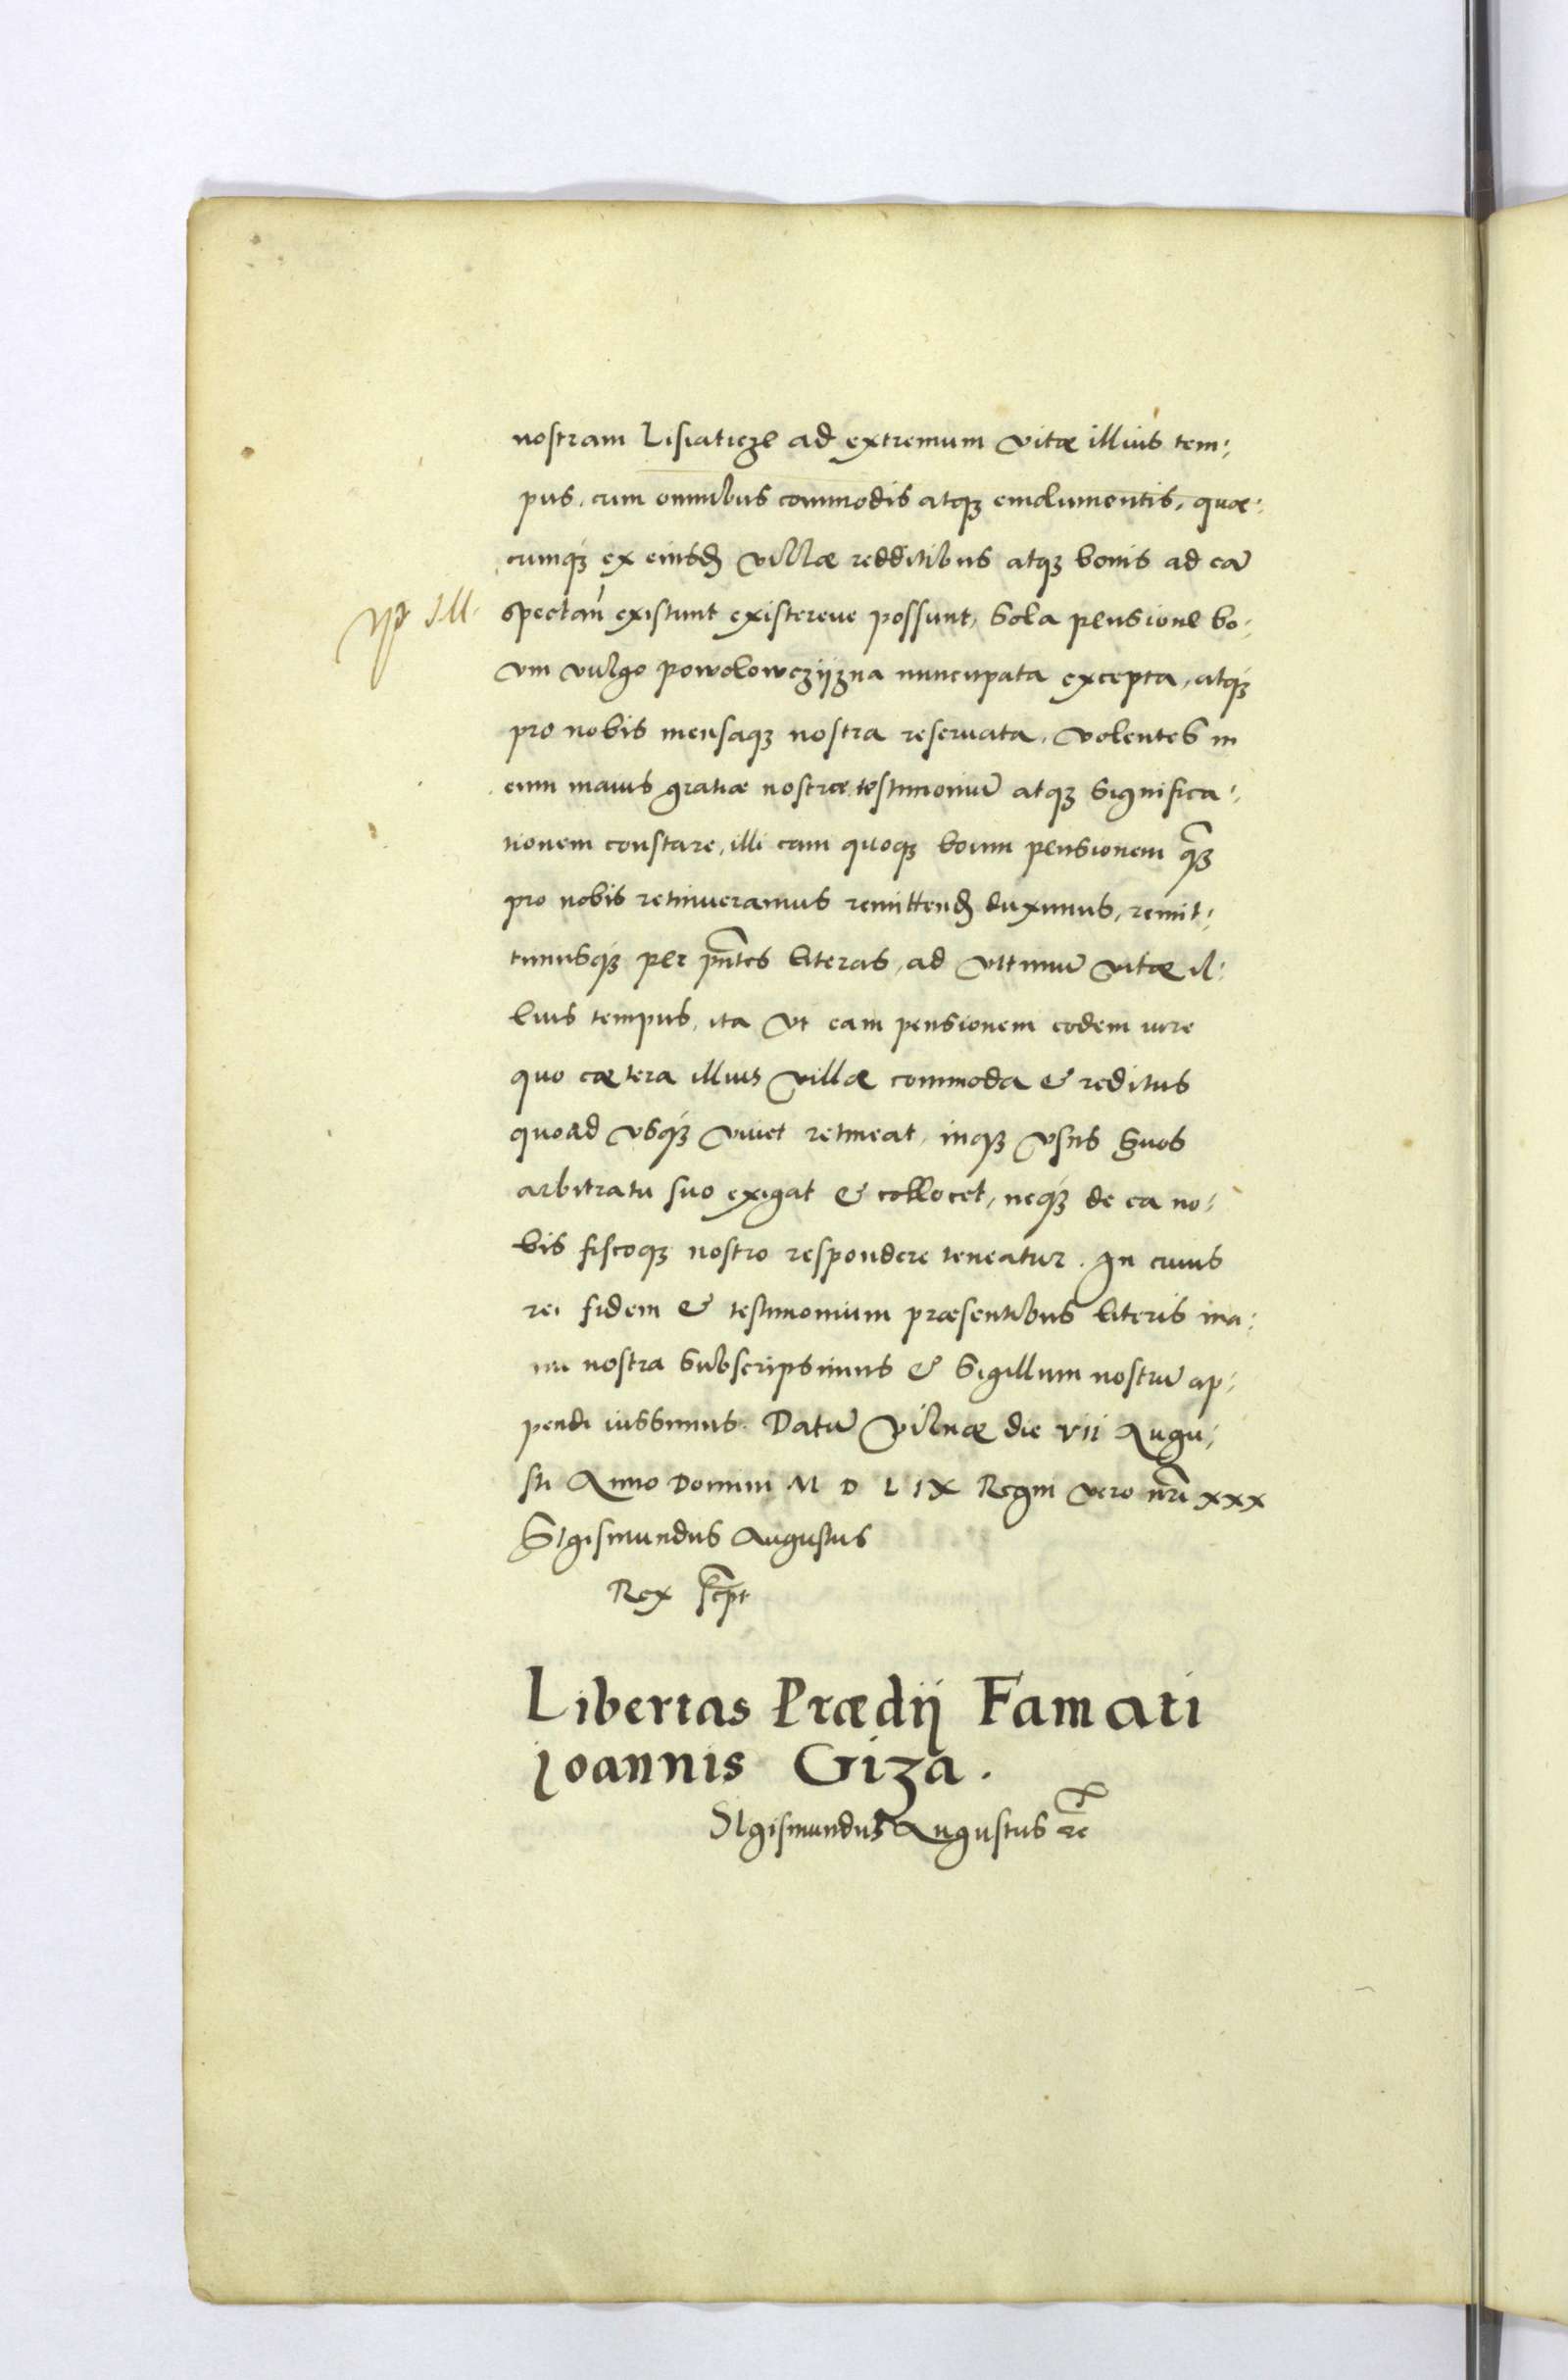 nostram Lisiaticze ad extremum vitæ illius tem:
pus, cum omnibus commodis atqꝫ emolumentis, quæ:
cumqꝫ ex eiusdꝫ villæ redditibus atqꝫ bonis ad eā
spectan̄ existunt existereue possunt, Sola pensione bo:
vm vulgo powolowczijzna nuncupata excepta, atqꝫ
pro nobis mensaqꝫ nostra reseruata, volentes in
eum maius gratiæ nostræ testimoniū atqꝫ Significa:
tionem constare, illi eam quoqꝫ boum pensionem quā
pro nobis retinueramus remittendꝫ duximus, remit:
timusqꝫ per pn̄tes literas, ad vltimū vitæ il:
lius tempus, ita vt eam pensionem eodem iure
quo cætera illius villæ commoda & reditus
quoad vsqꝫ viuet retineat, inqꝫ vsus Suos
arbitratu suo exigat & collocet, neqꝫ de ea no:
bis fiscoqꝫ nostro respondere teneatur. In cuius
rei fidem & testimonium præsentibus literis ma:
nu nostra Subscripsimus & Sigillum nostrū ap:
pendi iussimus. Datū Vilnæ die vii Augu:
sti Anno Domini M D L IX Regni vero nr̄i xxx
Sigismundus Augustus
Rex sc̄pt
Libertas Prædij Famati
Joannis Giza.
Sigismundus Augustus re^x